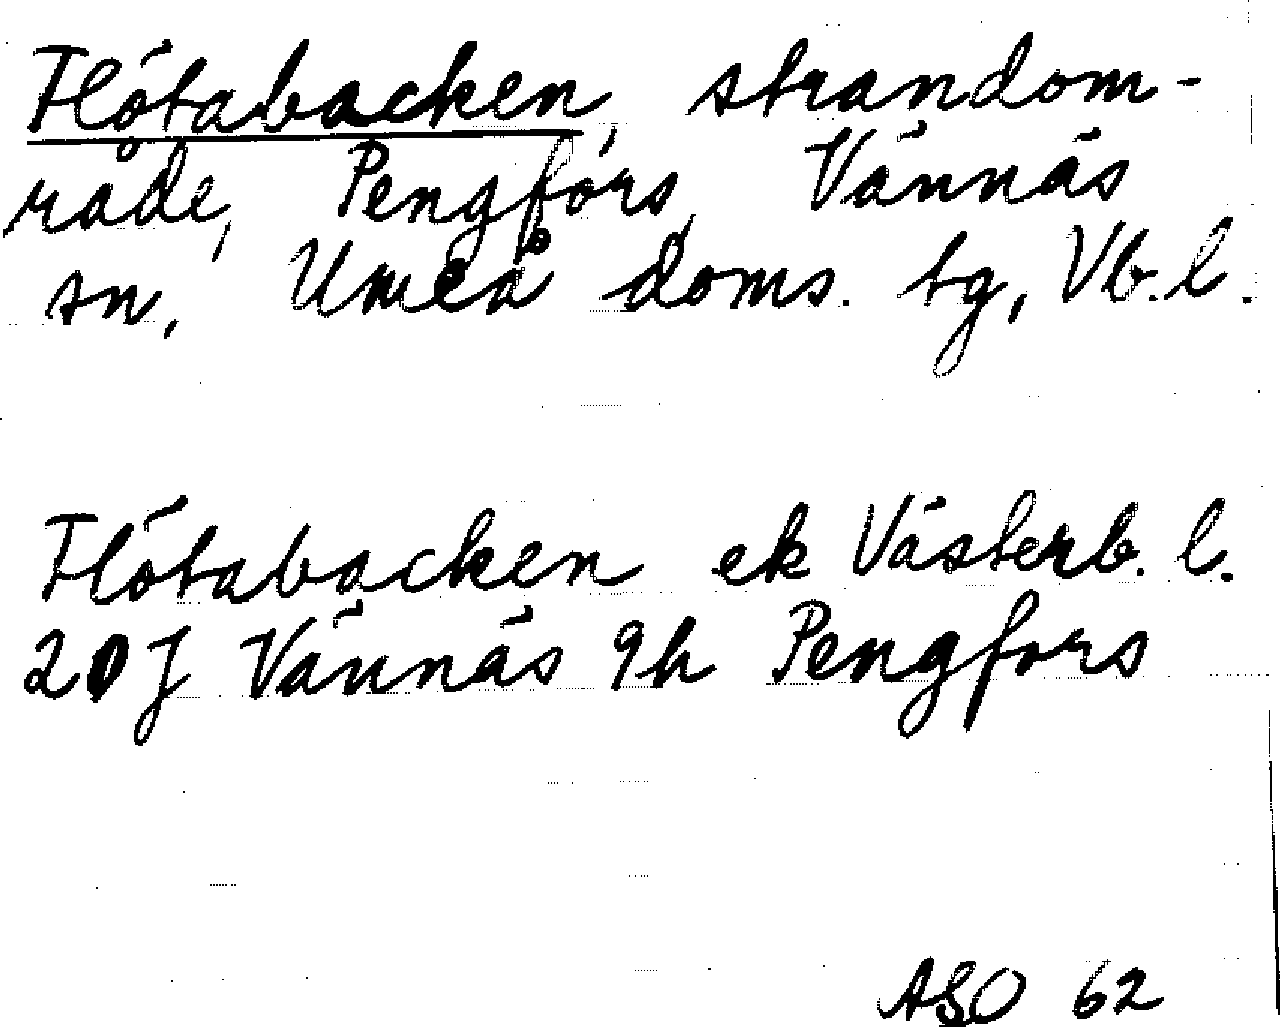 Flötabacken, strandom-
råde, Pengfors, Vännäs
sn, Umeå doms. tg, Vb.l.
Flötabacken ek Västerb. l.
20J Vännäs 9h Pengfors
ASO 62